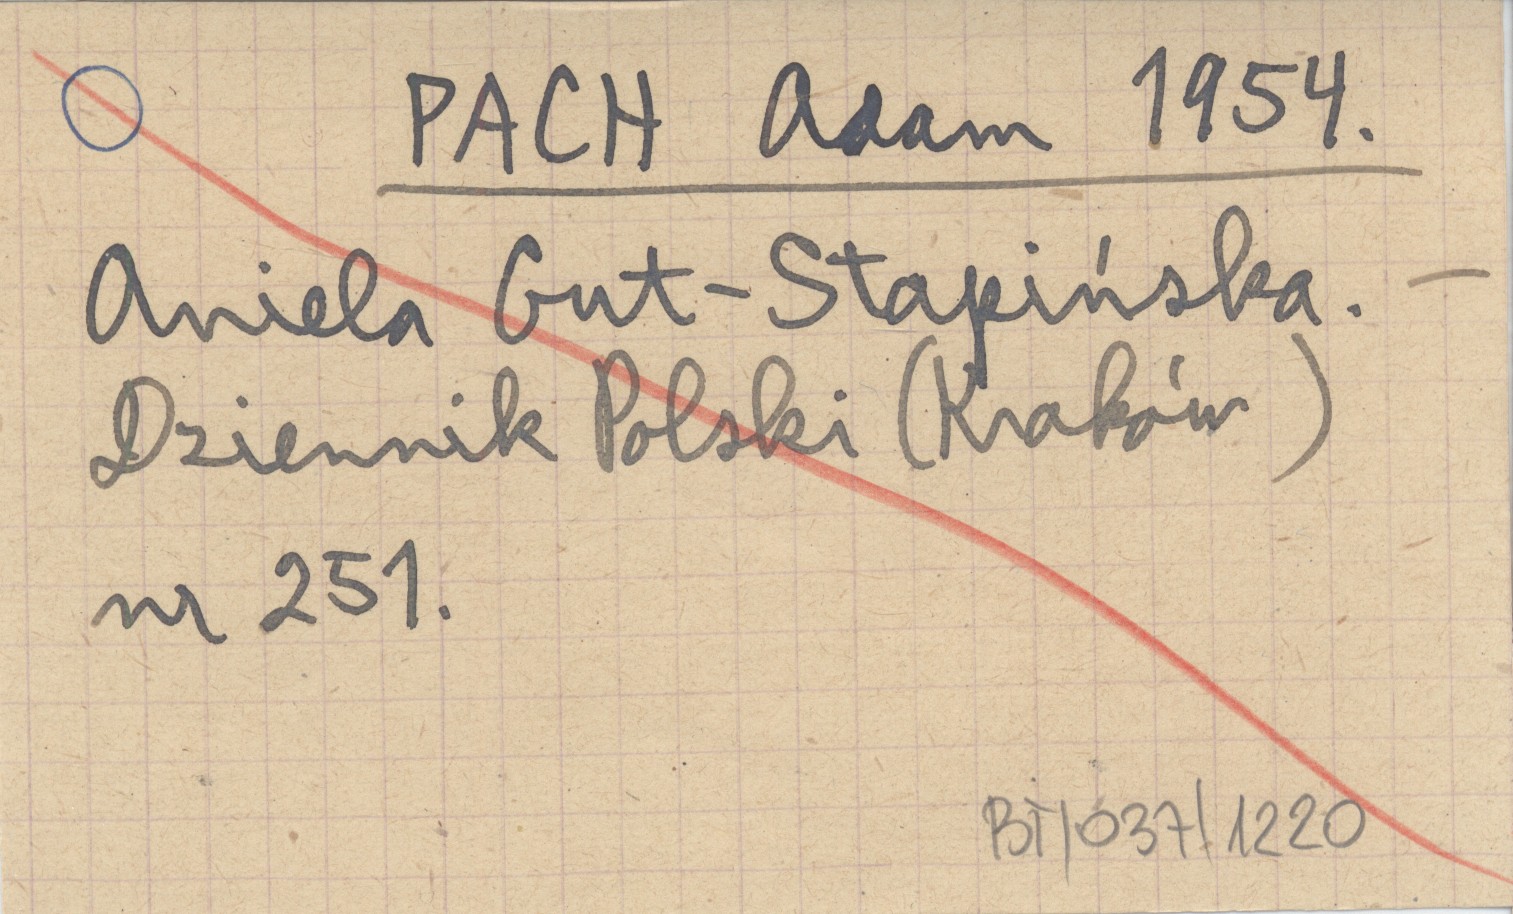 PACH Adam 1954.
Aniela Gut-Stapińska. —
Dziennik Polski (Kraków)
nr 251.
BT/037/1220